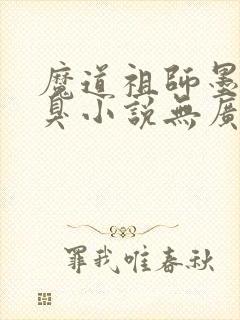 魔道祖師墨
臭小説無廣
罪我唯春秋